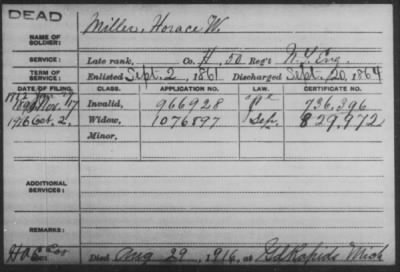 DEAD
NAME OF SOLDIER: Miller, Horace W.
SERVICE: Late rank, Co. H, 50 Reg't N.Y. Eng.
TERM OF SERVICE: Enlisted Sept. 2, 1861 Discharged Sept. 20, 1864
DATE OF FILING. CLASS. APPLICATION NO. LAW. CERTIFICATE NO.
Nov. 17 Invalid, 966928 736,396
1916 Oct. 2. Widow, 1076897 829,972
Minor,
ADDITIONAL SERVICES:
REMARKS:
Died Aug 29, 1916, at Gd Rapids Mich